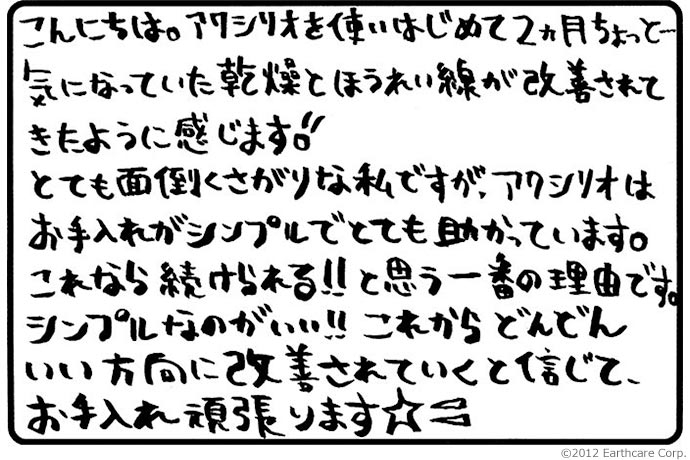 こんにちは。アクシリオを使いはじめて2ヵ月ちょっと…
気になっていた乾燥とほうれい線が改善されて
きたように感じます!!
とても面倒くさがりな私ですが、アクシリオは
お手入れがシンプルでとても助かっています。
これなら続けられる!!と思う一番の理由です。
シンプルなのがいい!! これからどんどん
いい方向に改善されていくと信じて、
お手入れ頑張ります☆ニ
©2012 Earthcare Corp.